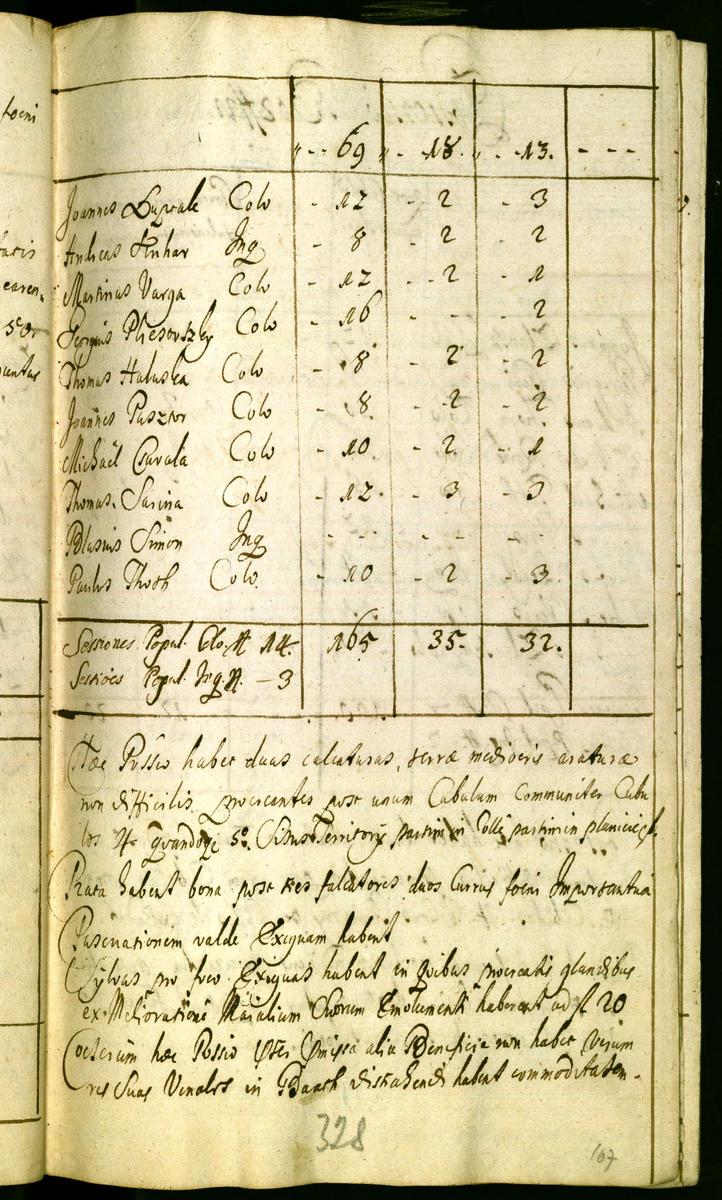 foeni
„ - - 69 „ - 18. „ - 13. - - -
Joannes Colo - 12 - 2 - 3
Andreas Inq - 8 - 2 - 2
Martinus Varga Colo - 12 - 2 - 1
Colo - 16 - - - 2
Thomas Haluska Colo - 8 - 2 - 2
Joannes Pasztor Colo - 8 - 2 - 2
Michaël Csavala Colo - 10 - 2 - 1
Thomas Sarina Colo - 12 - 3 - 3
Blasius Simon Inq - - - - - - -
Paulus Thoth Colo - 10 - 2 - 3
Sessiones Popul. Colo. N 14. 165 35. 32.
Sessiões Popul. Inq. N. - 3
Hæc Possio habet duas calcaturas, terræ mediocris araturæ
non difficilis procreantes post unum Cubulum Communiter Cubu
los 4 quandoq; 5. Situs Territorij partim in Colle partim in planicie
Prata habent bona post tres falcatores duos Currus foeni Importantia
Pascuationem valde Exiguam habent
Sylvas pro foco Exiguas habent in quibus procreatis glandibus
ex Melioratione Majalium Suorum Emolumenti haberent ad fl 20
Coeterum hæc Possio præter præmissa alia Beneficia non habet Verum
res Suas Venales in distrahendi habent commoditatem.
328
167